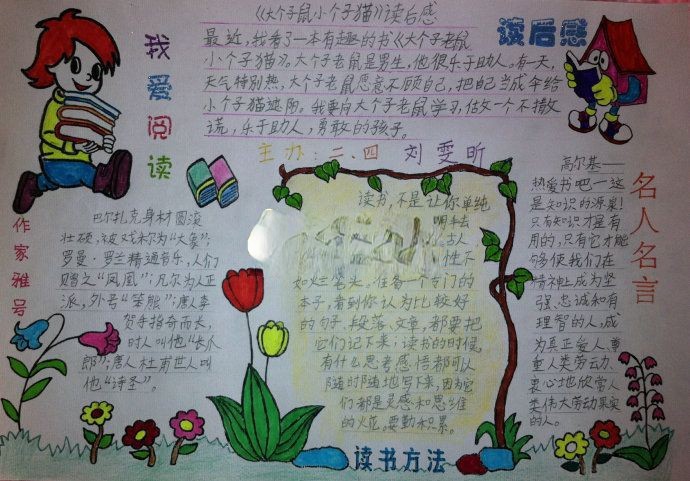 《大个子鼠小个子猫》读后感
最近，我看了一本有趣的书《大个子老鼠
小个子猫》。大个子老鼠是男生，他很乐于助人。有一天，
天气特别热，大个子老鼠愿意不顾自己，把自己当成伞给
小个子猫遮阴。我要向大个子老鼠学习，做一个不撒
谎，乐于助人，勇敢的孩子。
读后感
我爱阅读
主办：二、四 刘雯昕
作家雅号
巴尔扎克身材圆滚
壮硕，被戏称为“大象”；
罗曼·罗兰精通音乐，人们
赠之“凤凰”；凡尔为人正
派，外号“笨熊”；唐人李
贺手指奇而长，
时人叫他“长爪
郎”；唐人杜甫世人叫
他“诗圣”。
读书，不是让你单纯
用手去
古人
性不
如烂笔头。准备一个专门的
本子，看到你认为比较好
的句子、段落、文章，都要把
它们记下来；读书的时候
有什么思考感悟都可以
随时随地写下来，因为它
们都是灵感和思维
的火花。要勤积累。
读书方法
名人名言
高尔基——
热爱书吧——这
是知识的源泉！
只有知识才是有
用的，只有它才能
够使我们在
精神上成为坚
强、忠诚和有
理智的人，成
为真正爱人、尊
重人类劳动、
衷心地欣赏人
类伟大劳动果实
的人。